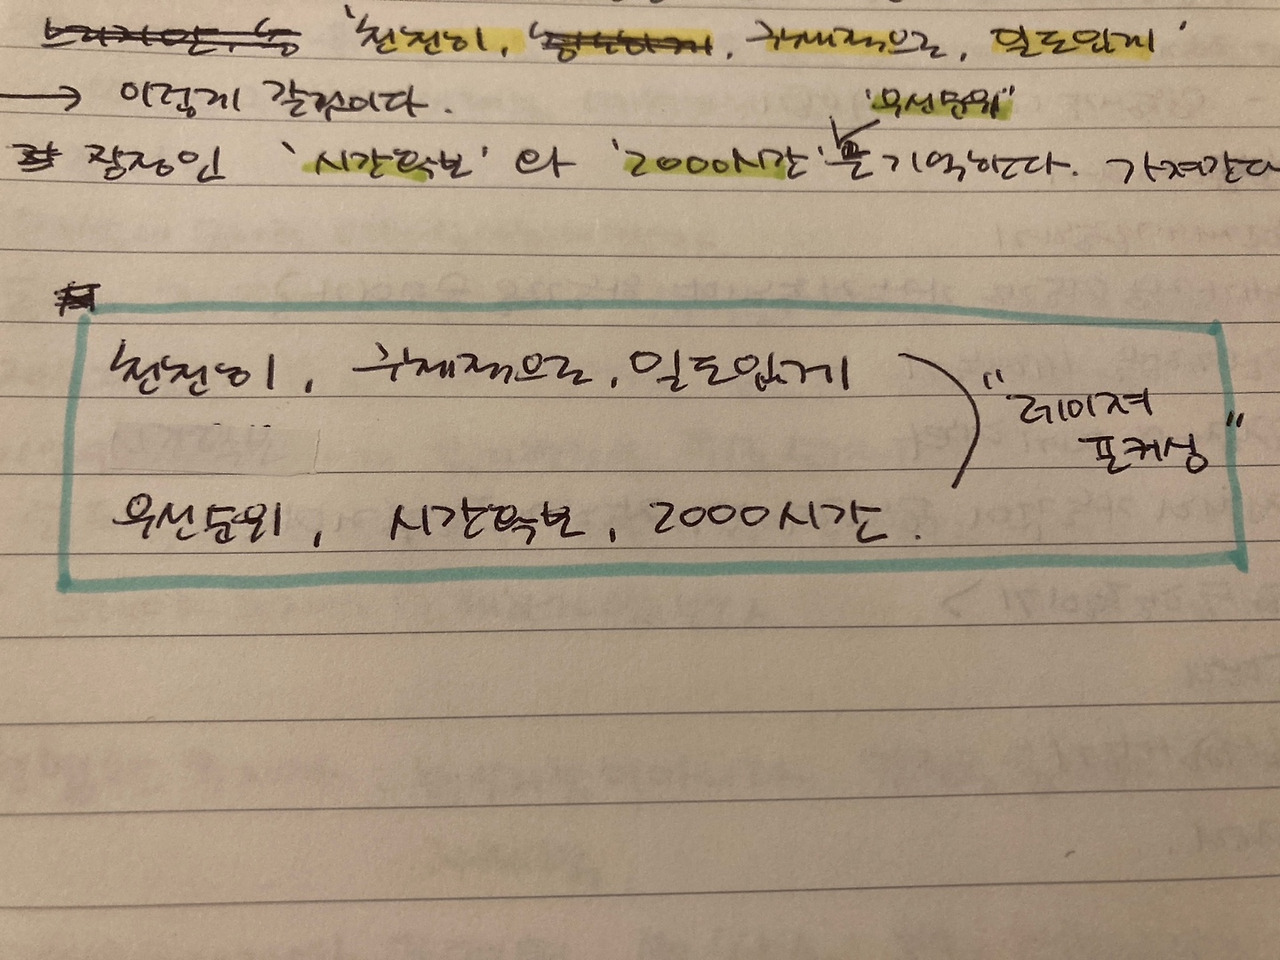 '천천히, 구체적으로, 밀도있게'
→ 이렇게 갈것이다.
'우선순위'
장점인 '시간확보'와 '2000시간'을 기억한다. 가져간다
천천히, 구체적으로, 밀도있게
"레이져
포커싱"
우선순위, 시간확보, 2000시간.